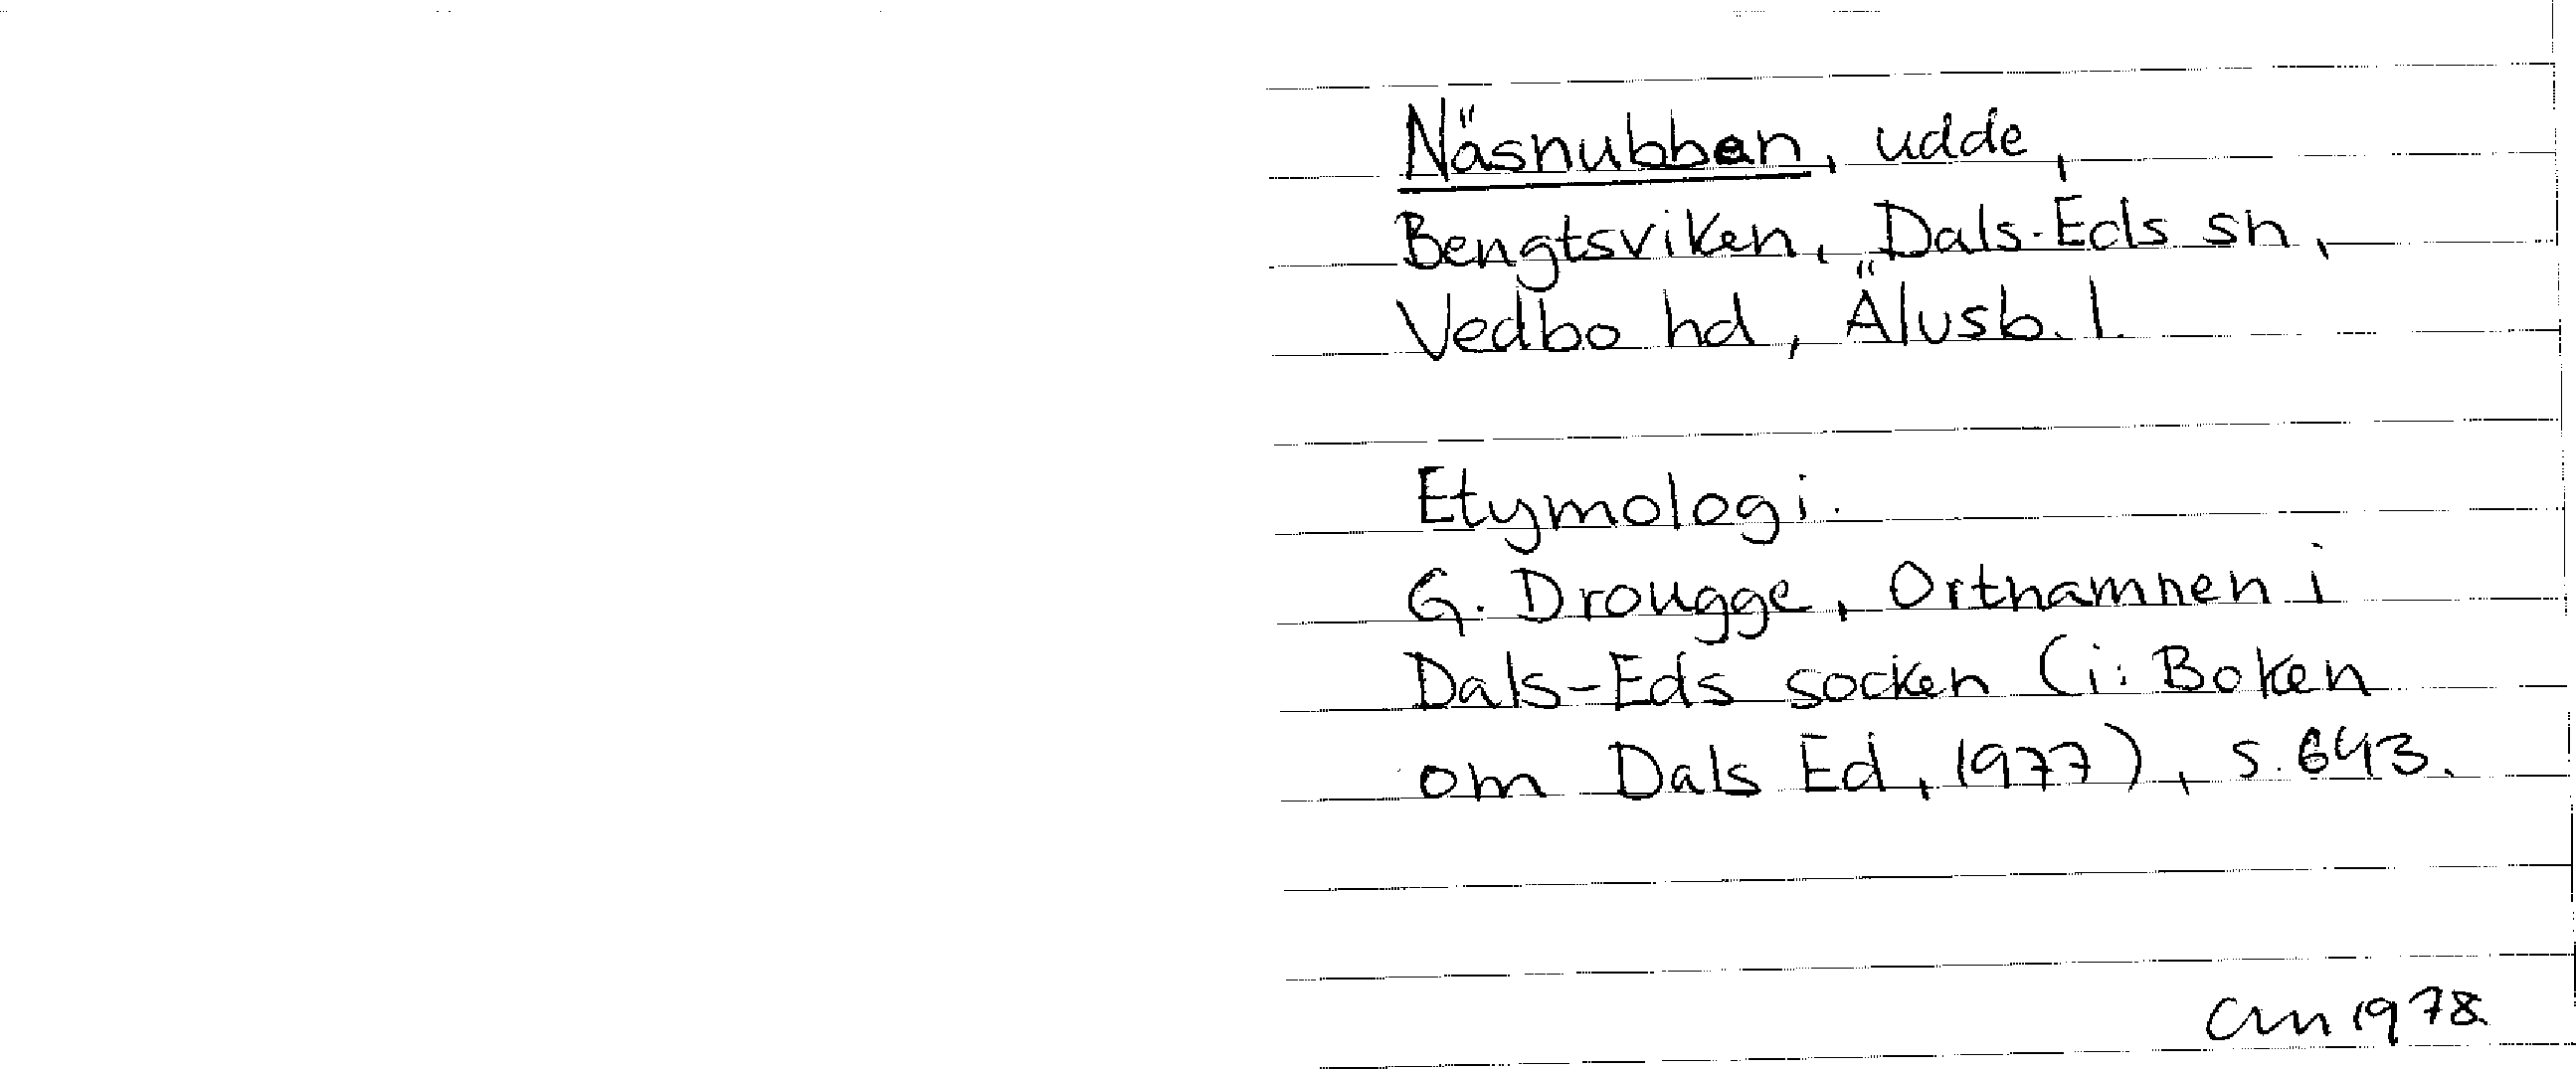 Näsnubben, udde,
Bengtsviken, Dals-Eds sn,
Vedbo hd, Älvsb. l.
Etymologi.
G. Drougge, Ortnamnen i
Dals-Eds socken (i: Boken
om Dals Ed, 1977), s. 643.
CM 1978